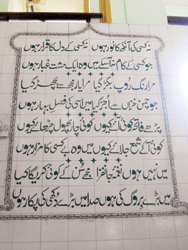 نہ کسی کی آنکھ کا نور ہوں نہ کسی کے دل کا قرار ہوں
جو کسی کے کام نہ آسکے میں وہ ایک مشت غبار ہوں
مرا رنگ روپ بگڑ گیا مرا یار مجھ سے بچھڑ گیا
جو چمن خزاں سے اجڑ گیا میں اسی کی فصل بہار ہوں
پڑھے فاتحہ کوئی آئے کیوں کوئی چار پھول چڑھائے کیوں
کوئی آکے شمع جلائے کیوں میں وہ بے کسی کا مزار ہوں
میں نہیں ہوں نغمۂ جانفزا مجھے سن کے کوئی کرے گا کیا
میں بڑے بروگ کی ہوں صدا میں بڑے دکھی کی پکار ہوں